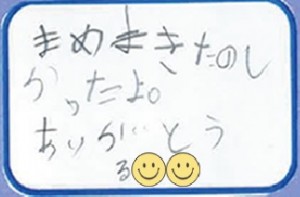 まめまきたのし
かったよ。
ありがとう
る